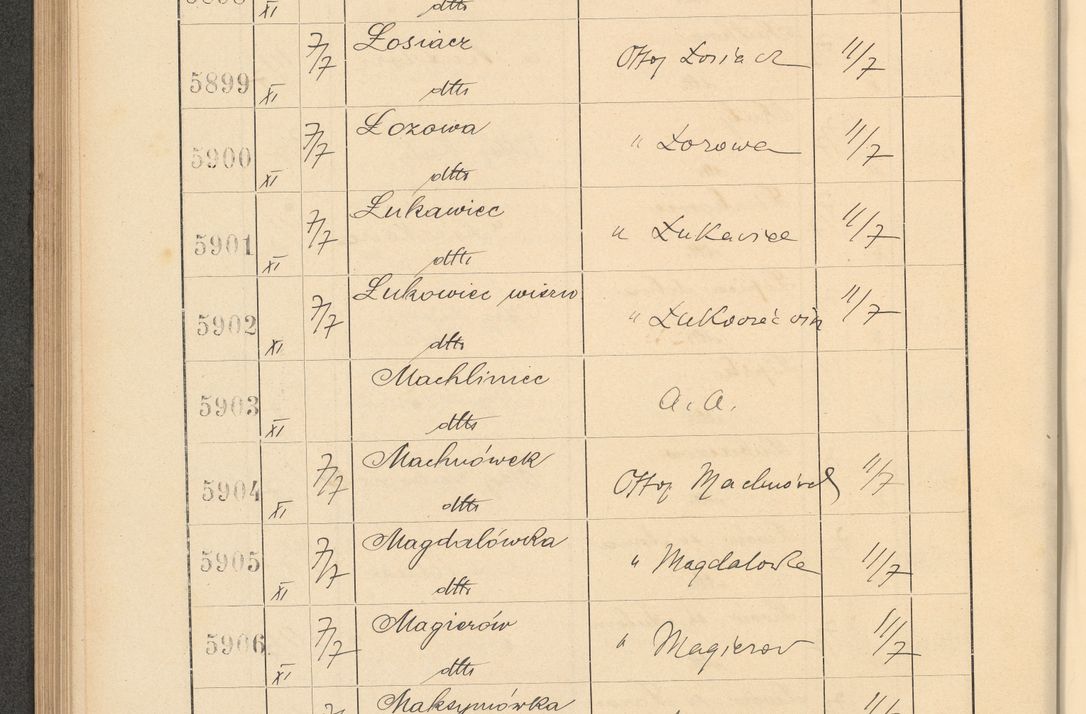 XI dtto
5899 XI 7/7 Łosiacz dtto Łosiacz 11/7
5900 XI 7/7 Łozowa dtto " Łozowa 11/7
5901 XI 7/7 Łukawiec dtto " Łukawiec 11/7
5902 XI 7/7 Łukowiec wiszn dtto " 11/7
5903 XI Machliniec dtto a. a.
5904 XI 7/7 Machnówek dtto Machnówek 11/7
5905 XI 7/7 Magdalówka dtto " Magdalowka 11/7
5906 XI 7/7 Magierów dtto " Magierov 11/7
Maksymówka